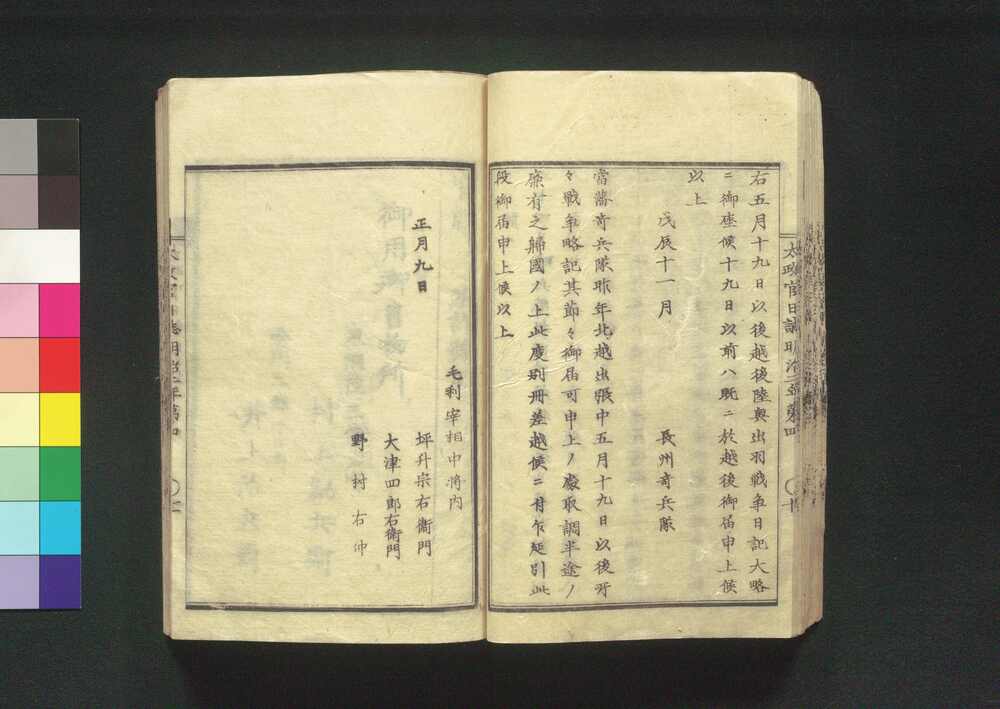 右五月十九日以後越後陸奥出羽戦争日記大略
ニ御座候十九日以前ハ既ニ於越後御届申上候
以上
戊辰十一月
長州奇兵隊
當藩奇兵隊昨年北越出張中五月十九日以後所
々戦争略記其節々御届可申上ノ處取調半途ノ
廉有之歸國ノ上此度別冊差越候ニ付乍延引此
段御届申上候以上
毛利宰相中将内
正月九日
坪井宗右衞門
大津四郎右衞門
野村右仲
太政官日誌明治二年第四
〇十